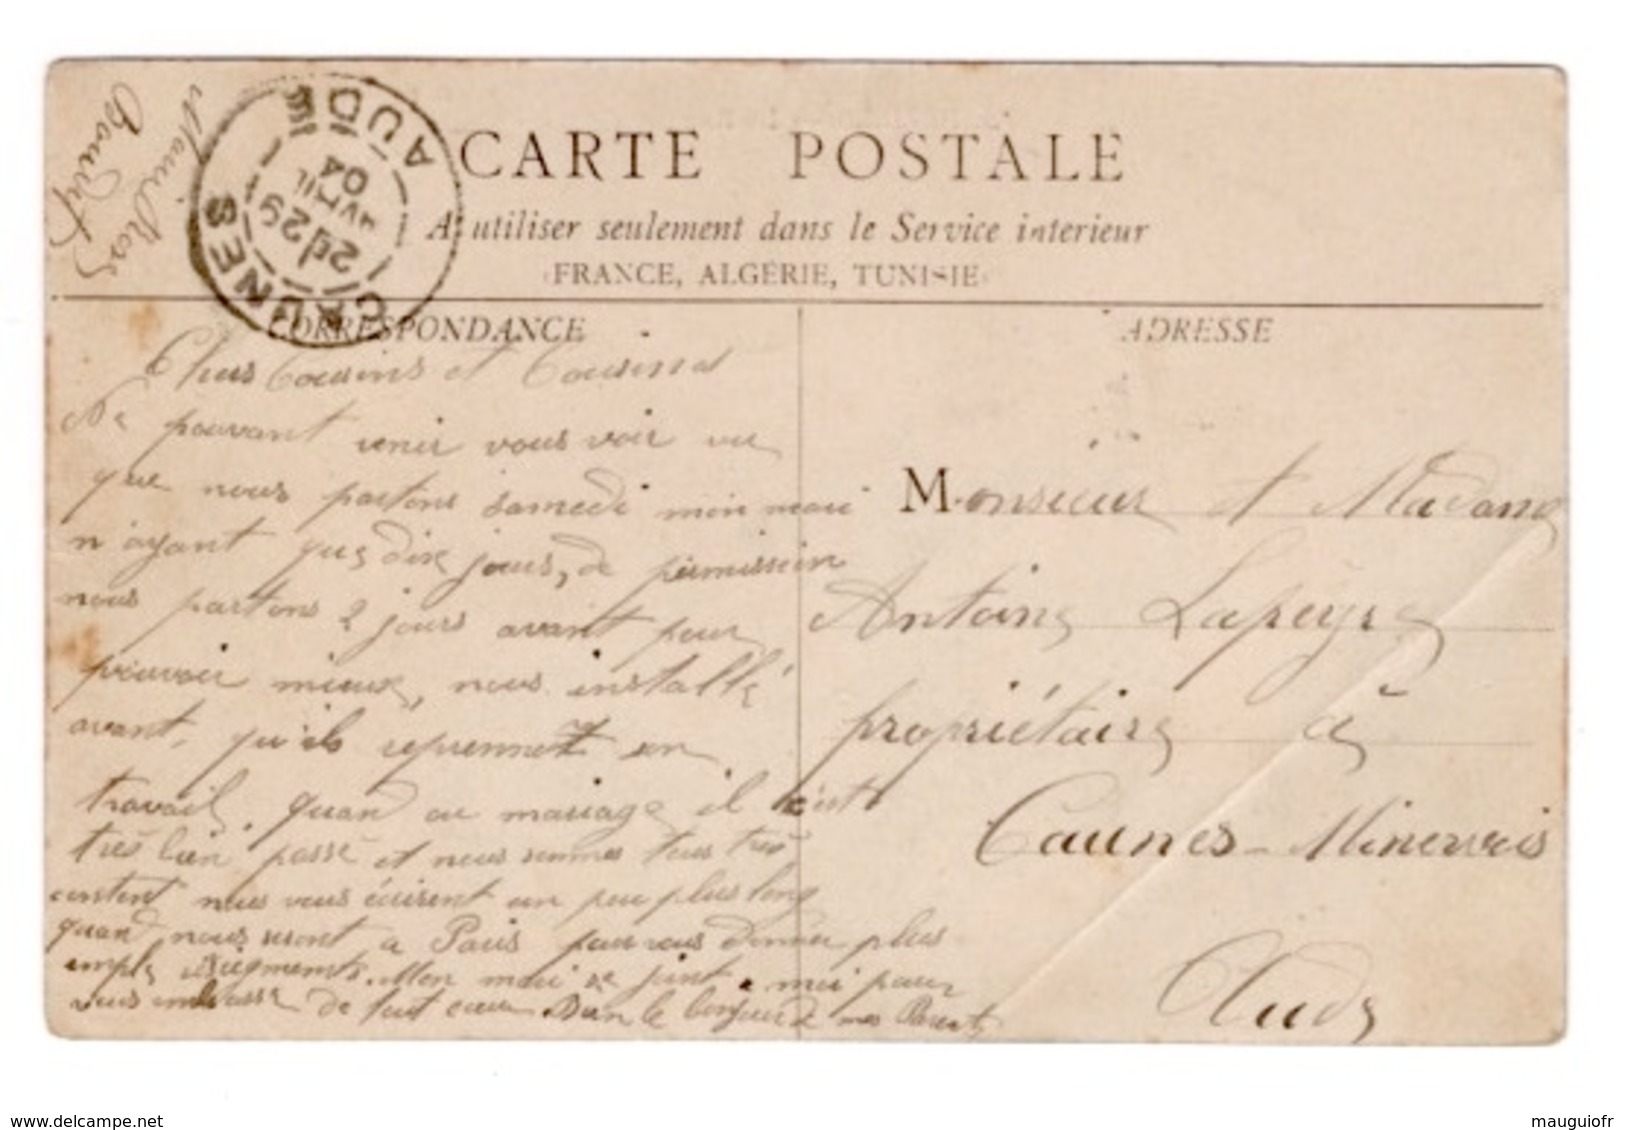 CARTE POSTALE
A utiliser seulement dans le Service interieur
(FRANCE, ALGÉRIE, TUNISIE)
CAUNES
AUDE
2d 29
AVRIL
04
CORRESPONDANCE
Chers Cousins et Cousines
Ne pouvant venir vous voir vu
que nous partons samedi mon mari
n'ayant que dix jours, de permission
nous partons 2 jours avant pour
pouvoir mieux, nous installé
avant, qu'ils reprennent son
travail. quand au mariage il c'est
très bien passé et nous sommes tous très
content nous vous écrirent un peu plus long
quand nous seront à Paris pour vous donner plus
emple Mon mari se joint a moi pour
vous embrassé de tout cœur Bien le bonjour de mes Parents
ADRESSE
Monsieur et Madame
Antoine Lapeyre
propriétaire à
Caunes-Minervois
Aude
delcampe.net
mauguiofr